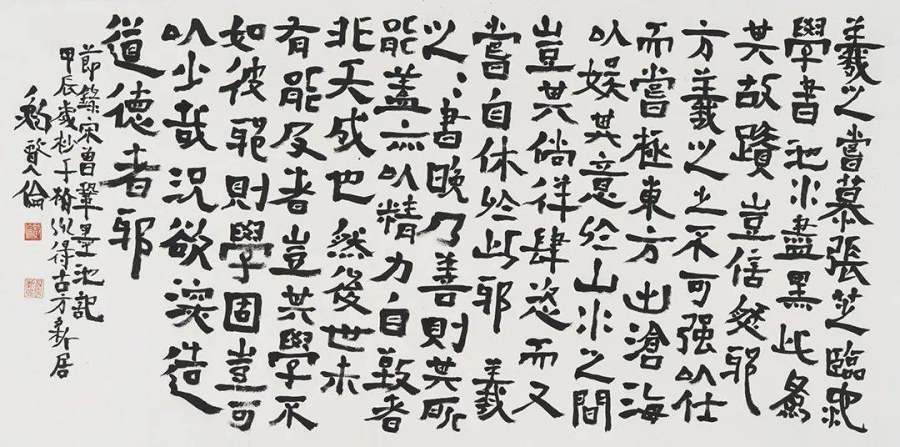 羲之嘗慕張芝臨池
學書池水盡黑此為
其故蹟豈信然耶
方羲之之不可强以仕
而嘗極東方出滄海
以娛其意於山水之間
豈其倘徉肆恣而又
嘗自休於此耶 羲
之〻書晚乃善則其所
能蓋亦以精力自致者
非天成也 然後世未
有能及者豈其學不
如彼耶則學固豈可
以少哉況欲深造
道德者耶
節錄宋曾鞏墨池記
甲辰歲杪于得古方居
賢倫